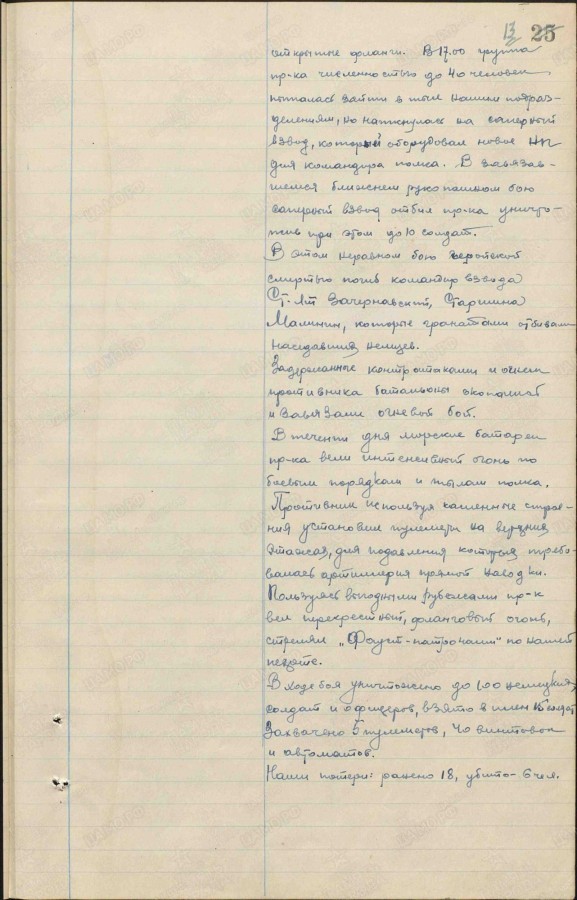 13 25
открытые фланги. В 17.00 группа
пр-ка численностью до 40 человек,
пыталась зайти в тыл нашим подраз-
делениям, но наткнулась на саперный
взвод, который оборудовал новое НП
для командира полка. В завязав-
шемся ближнем рукопашном бою
саперный взвод отбил пр-ка уничто-
жив при этом до 10 солдат.
В этом неравном бою геройской
смертью погиб командир взвода
Ст. Л-т Зачернавский, Старшина
Малинин, которые гранатами отбивали
наседавших немцев.
Задержанные контратаками и огнем
противника батальоны окопались
и завязали огневой бой.
В течении дня морские батареи
пр-ка вели интенсивный огонь по
боевым порядкам и тылам полка.
Противник используя каменные строе-
ния установил пулеметы на верхних
этажах, для подавления которых требо-
валась артиллерия прямой наводки.
Пользуясь выгодными рубежами пр-к
вел перекрестный, фланговый огонь,
стрелял „Фауст-патронами" по нашей
пехоте.
В ходе боя уничтожено до 100 немецких
солдат и офицеров, взято в плен
Захвачено 5 пулеметов, 40 винтовок
и автоматов.
Наши потери: ранено 18, убито - 6 чел.